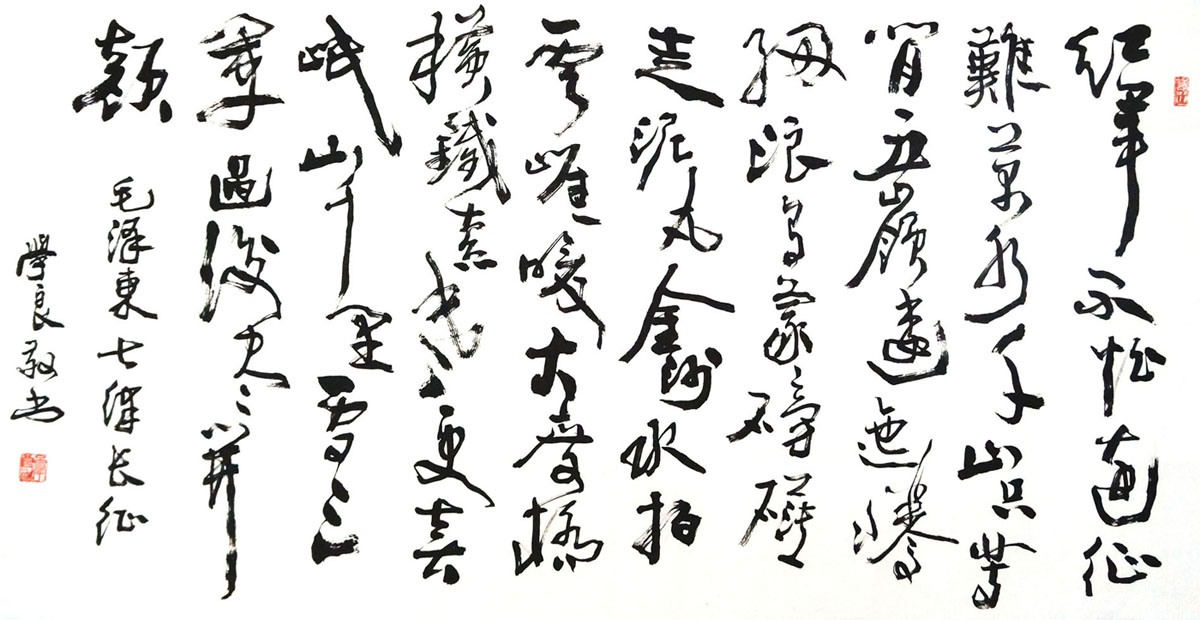 紅軍不怕遠征
難萬水千山只等
閒五嶺逶迤騰
細浪烏蒙磅礴
走泥丸金沙水拍
雲崖暖大渡橋
橫鐵索寒更喜
岷山千里雪三
軍過後尽開
顏
毛泽東七律长征
學良敬书